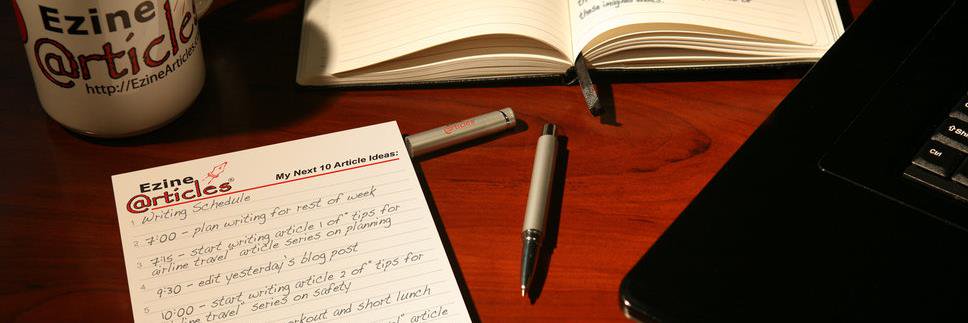 Ezine
@rticles
http://EzineArticles.
these imagined
Ezine
@rticles®
My Next 10 Article Ideas:
1. Writing Schedule
2. 7:00 - plan writing for rest of week
3. 7:15 - start writing article 1 of "tips for
airline travel" article series on planning
4. 9:30 - edit yesterday's blog post
5. 10:00 - start writing article 2 of "tips for
airline travel" series on safety
workout and short lunch
travel" article
Ctrl
Shift